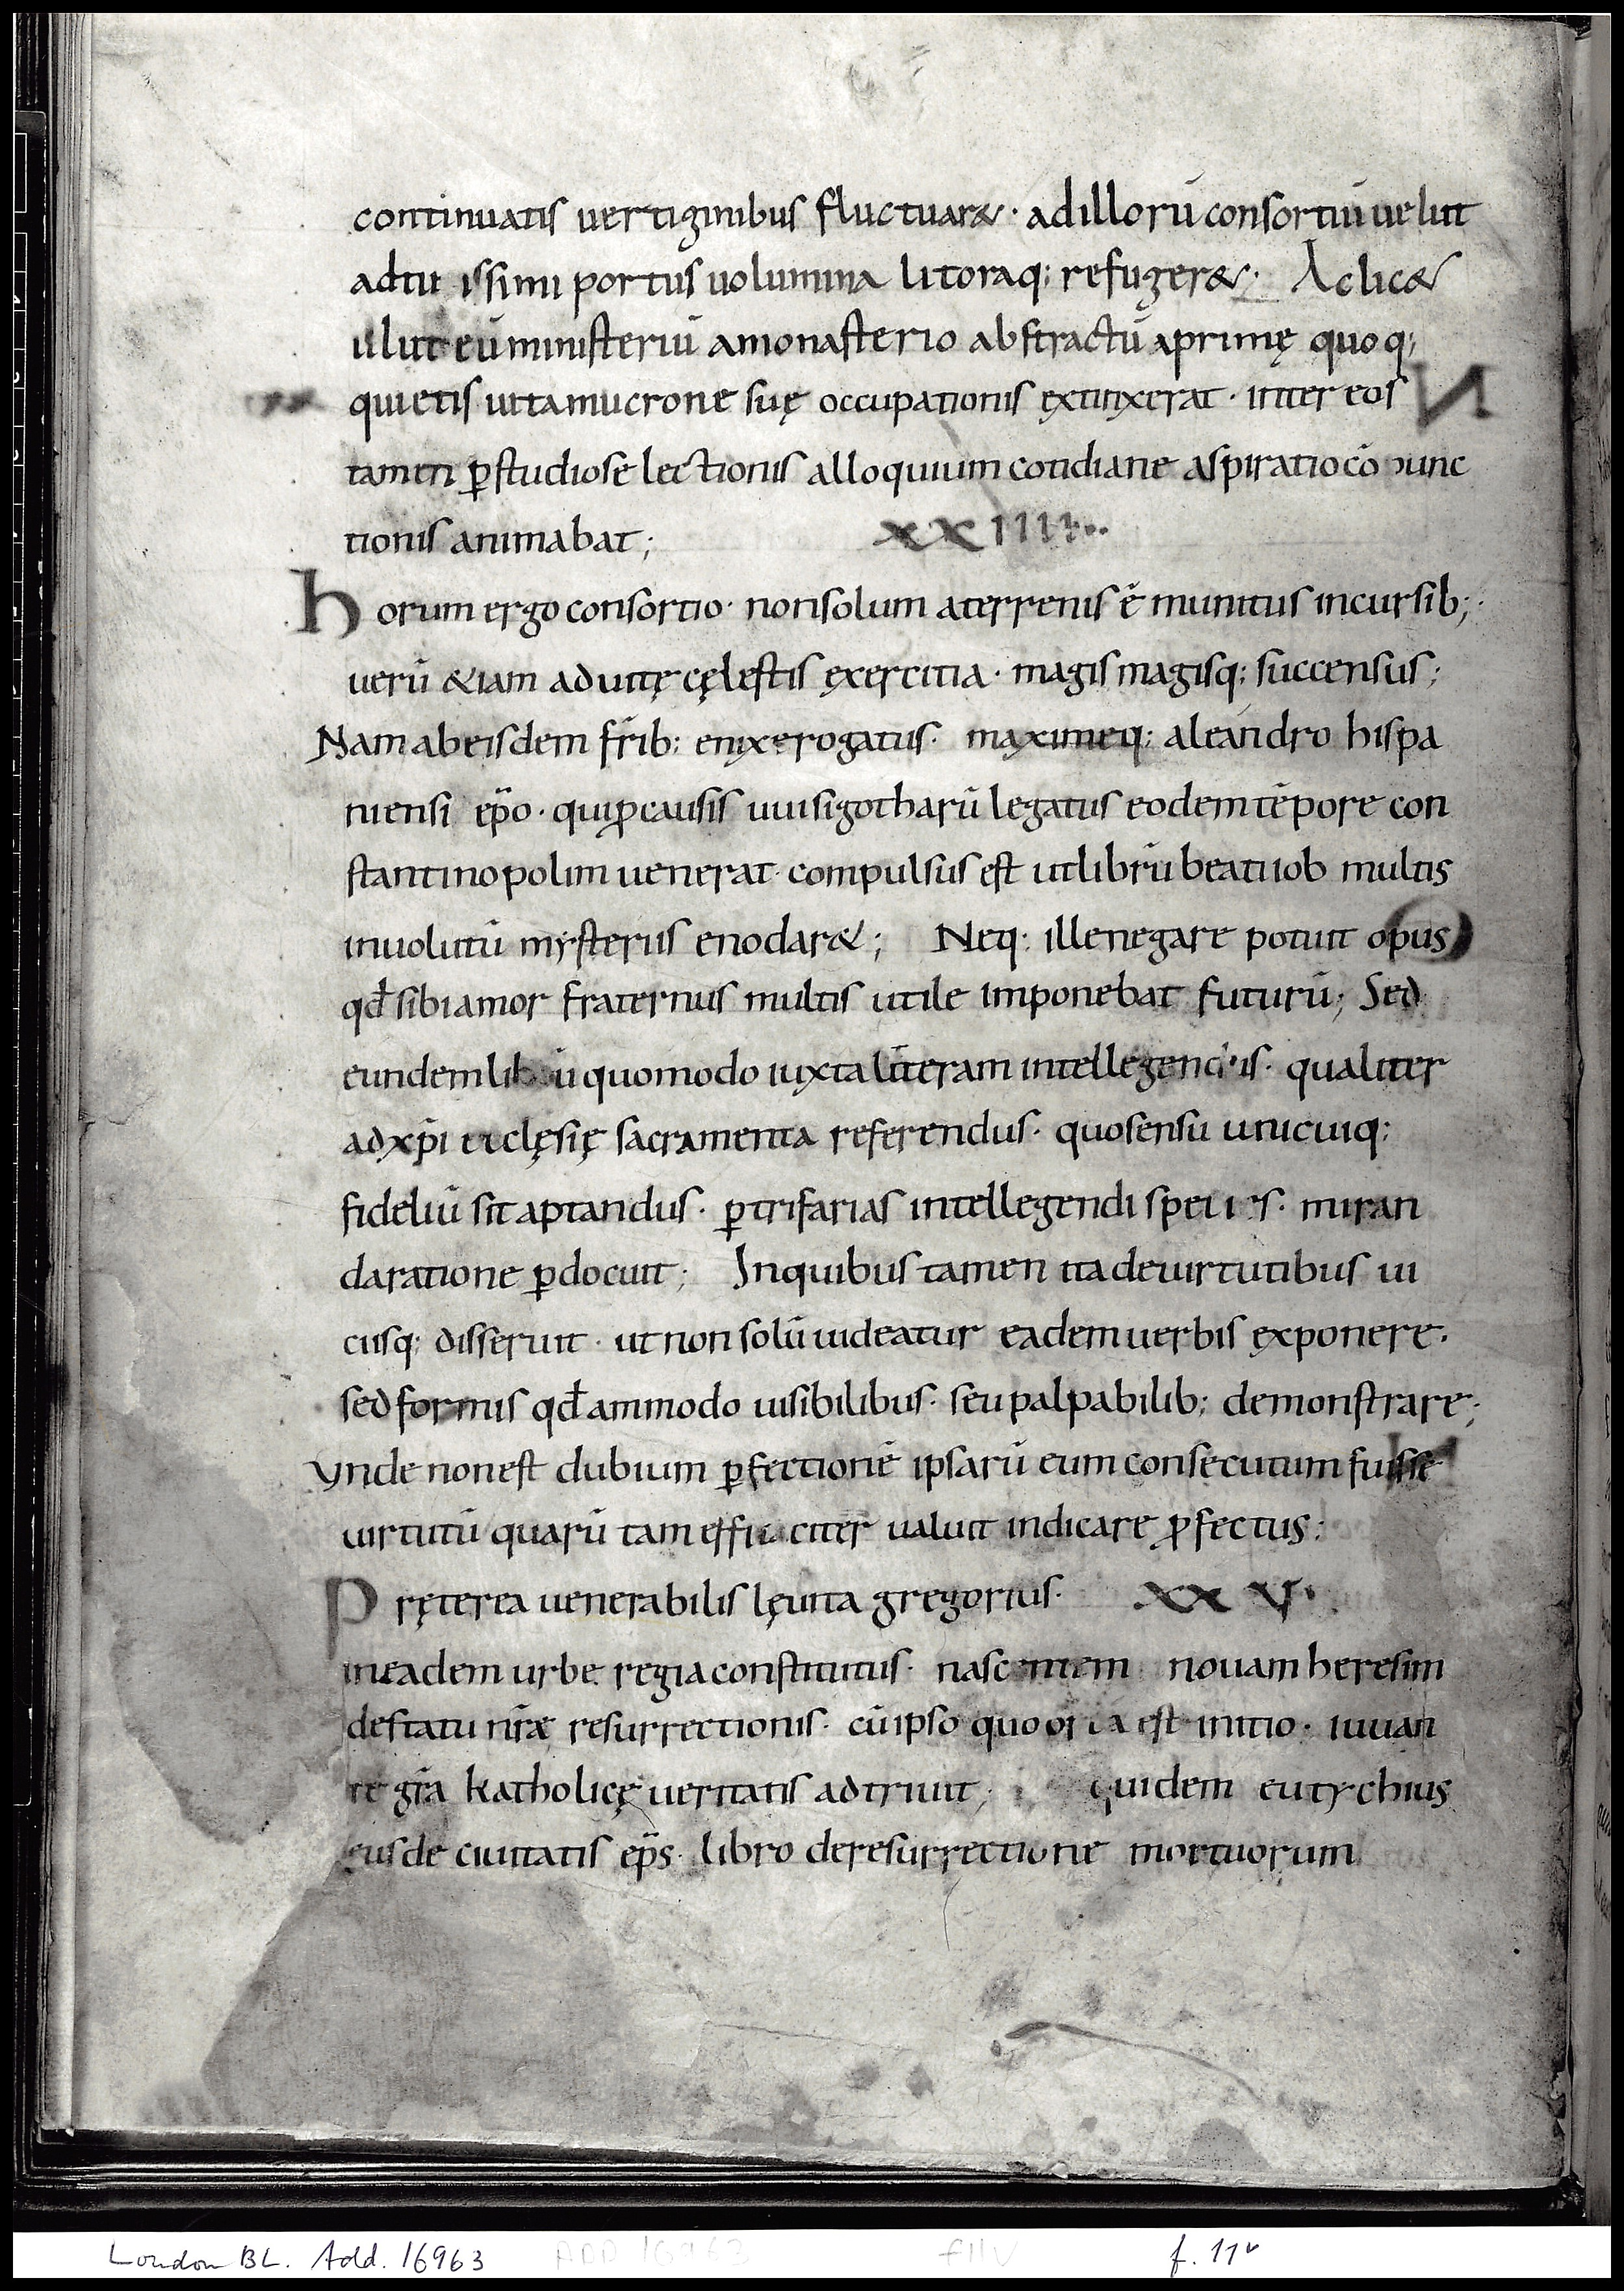 continuatis vertiginibus fluctuar&· adillorū consortiū uelut
adtu issimi portus uolumina litoraq; refuger&· Ac lic&
illut eū ministeriū amonasterio abstractū aprimę quoq;
quietis uita mucrone suę occupationis extinxerat· inter eos
tamen ꝑstudiose lectionis alloquium cotidiane aspiratio cō punc
tionis animabat;
XXIIII
horum ergo consortio· nonsolum aterrenis ē munitus incursib;
uerū &iam ad uitę cęlestis exercitia· magis magisq; succensus;
Nam abeisdem frīb; enixe rogatus· maximeq; aleandro hispa
niensi ep̄o· qui ꝓcausis uuisigotharū legatus eodem tēpore con
stantinopolim uenerat· compulsus est ut librū beati iob multis
inuolutū mysteriis enodar&; Neq; ille negare potuit opus
qđ sibi amor fraternus multis utile imponebat futurū; Sed
eundem quomodo iuxta literam qualiter
ad xp̄i ecclęsię sacramenta referendus· quo sensu unicuiq;
fideliū sit aptandus· ꝑ trifarias intellegendi miran
da ratione ꝑdocuit; Inquibus tamen ita de uirtutibus ui
ciisq; disseruit· ut non solū uideatur eadem uerbis exponere·
sed formis qđammodo uisibilibus· seu palpabilib; demonstrare;
Vnde non est dubium ꝑfectionē ipsarū eum consecutum fuisse
uirtutū quarū tam efficaciter ualuit indicare ꝓfectus;
Pręterea uenerabilis lęuita gregorius· XXV·
in eadem urbe regia constitutus· nascentem nouam heresim
de statu nr̄ae resurrectionis· cū ipso quo orta est initio· iuuan
te gr̄a katholicę ueritatis adtriuit; quidem eutychius
eiusde ciuitatis ep̄s· libro de resurrectione mortuorum
London BL. Add. 16963
ADD 16963
f11v
f. 11v